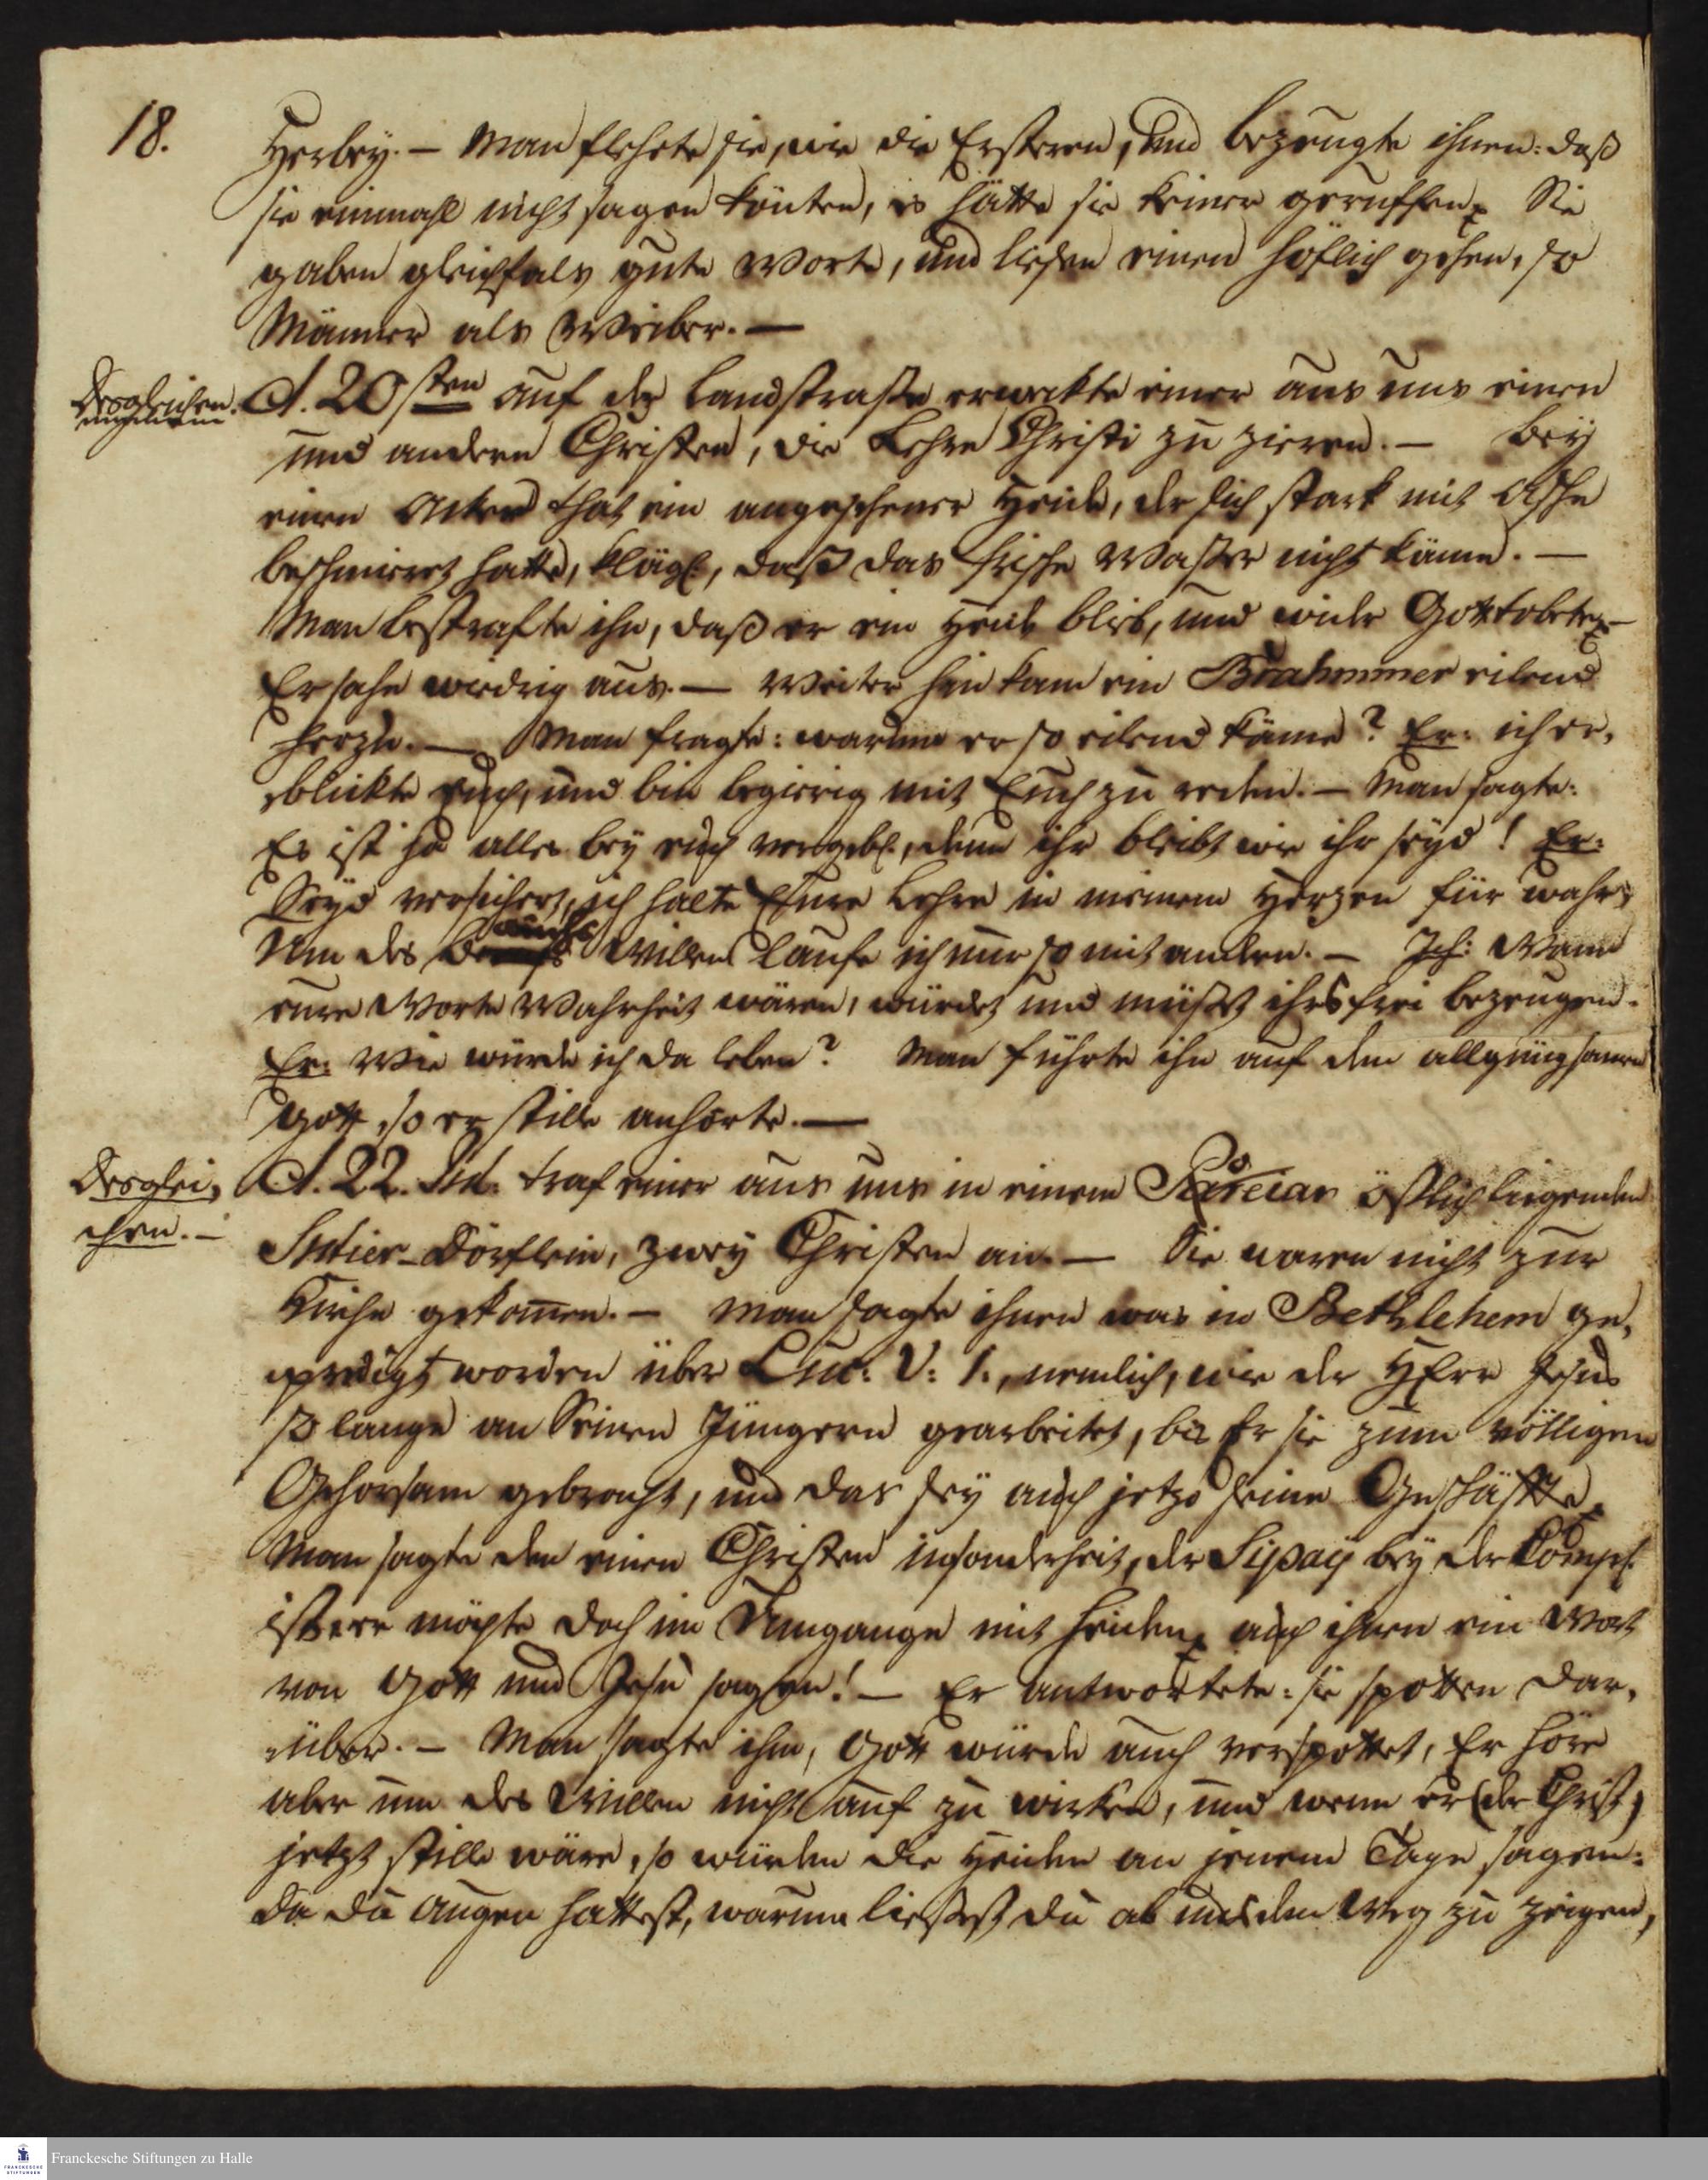 18.
Herbey. — Man flehete sie, wie die Ersteren, und bezeugte ihnen: daß
sie einmahl nicht sagen könten, es hätte sie keiner geruffen. Sie
gaben gleichfals gute Worte, und liesen einen höflich gehen, so
Männer als Weiber. —
Desgleichen.
d. 20sten auf der Landstrase erwekte einer aus uns einen
und andern Christen, die Lehre Christi zu zieren. — Bey
einen Acker that ein angesehener Heide, der sich stark mit Asche
beschmieret hatte, klägl., daß das frische Waßer nicht käme. —
Man bestrafte ihn, daß er ein Heide blieb, und wider Gott
Er sahe wiedrig aus. — Weiter hin kam ein Brahmmer eilend
herzu. — Man fragte: warum er so eilend käme? Er: ich er,
blickte euch, und bin begierig mit Euch zu reden. — Man sagte:
Es ist ja alles bey euch vergebl., denn ihr bleibt wie ihr seyd! Er:
Seyd versichert, ich halte Eure Lehre in meinem Herzen für wahr;
Um des Bauchs Willen laufe ich nur so mit andern. — Ich: Wann
eure Worte Wahrheit wären, würdet und müßt ihrs frei bezeugen.
Er: Wie würde ich da leben? Man führte ihn auf den allgnugsamen
Gott, so er stille anhörte. —
Desglei,
chen. —
d. 22. traf einer aus uns in einem östlich liegenden
Dörflein, zwey Christen an. — Sie waren nicht zur
Kirche gekom̅en. — Man sagte ihnen was in Bethlehem ge,
predigt worden über Luc: V: 1., nemlich, wie der HErr Jesus
so lange an Seinen Jüngern gearbeitet, bis Er sie zum völligen
Gehorsam gebracht, und das sey auch jetzo seine Geschäffte.
Man sagte den einen Christen insonderheit, der Sipay bey der Comp.
ist, er möchte doch im Umgange mit Heiden, auch ihnen ein Wort
von Gott und Jesu sagen! — Er antwortete: sie spotten dar,
über. — Man sagte ihm, Gott würde auch verspottet, Er höre
aber um des Willen nicht auf zu wirken, und wenn er (der Christ)
jetzt stille wäre, so würden die Heiden an jenem Tage sagen:
da du Augen hattest, warum liesest du ab uns den Weg zu zeigen,
FRANCKESCHE
STIFTUNGEN
Franckesche Stiftungen zu Halle